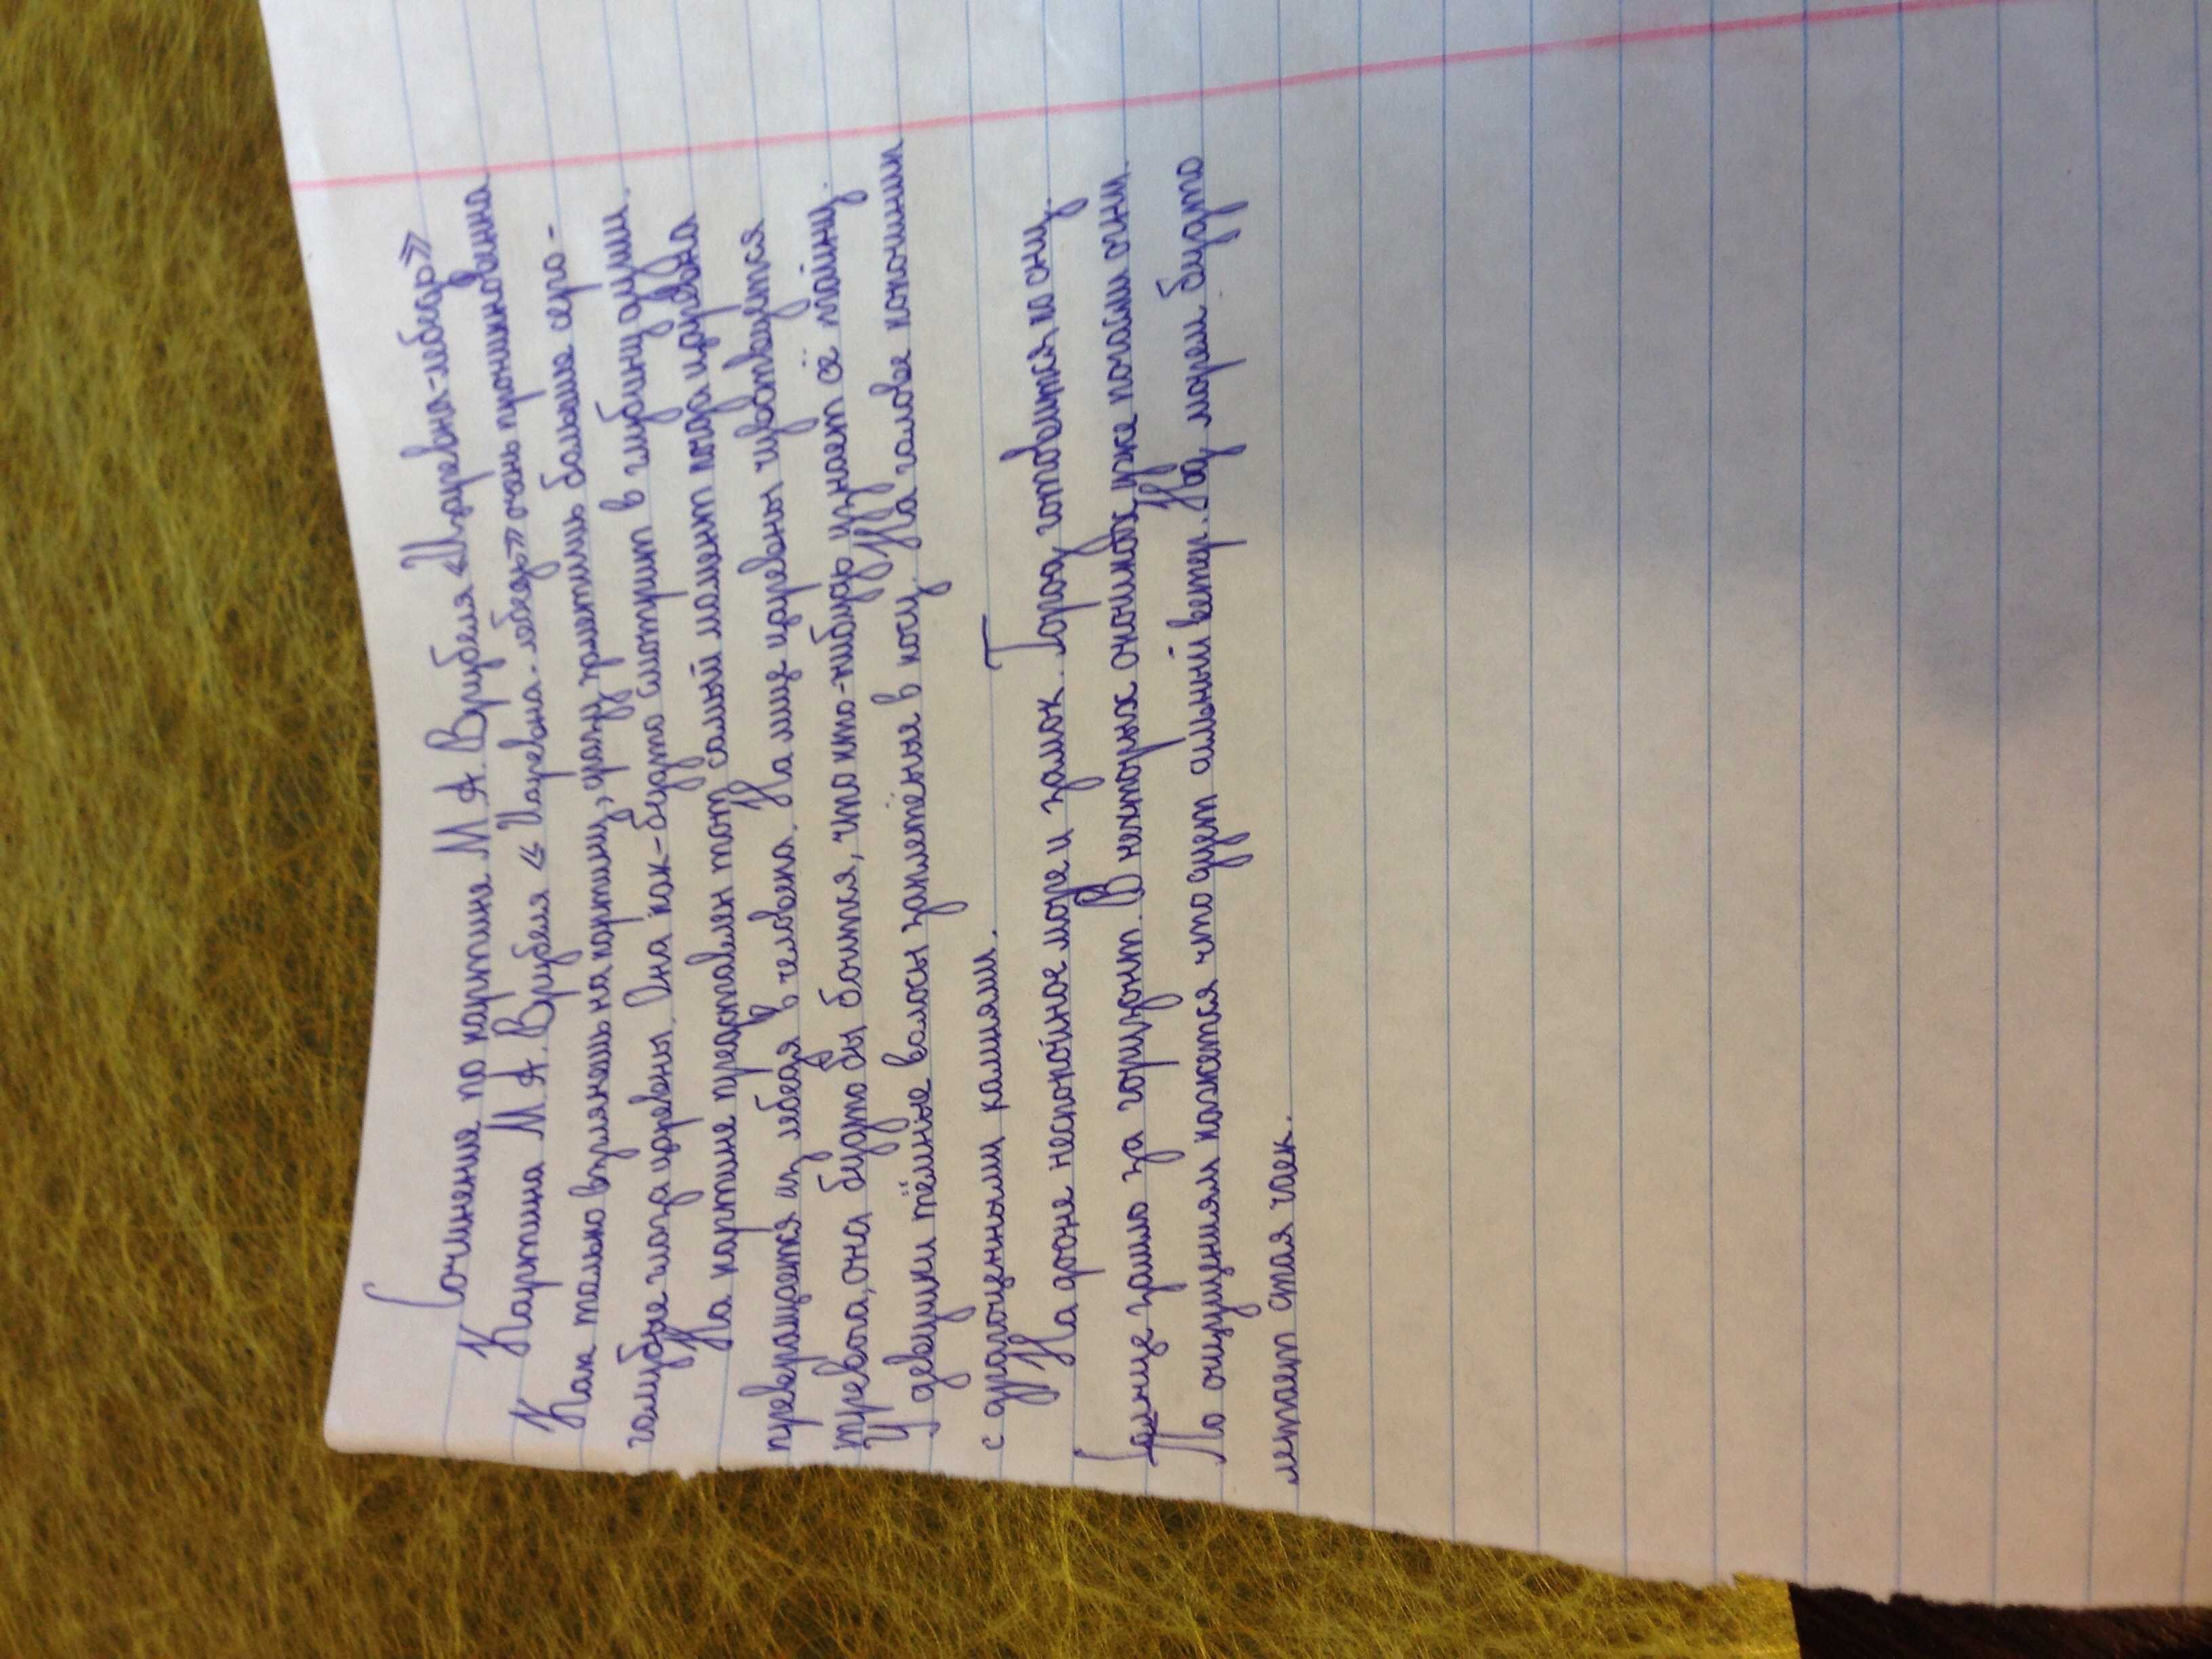 Сочинение по картине М.А.Врубеля «Царевна-лебедь»
Картина М.А.Врубеля «Царевна-лебедь» очень проникновенна
Как только взглянешь на картину, сразу приметишь больше серо-
голубые глаза царевны. Она как-будто смотрит в глубину души.
На картине представлен тот самый момент когда царевна
превращается из лебедя в человека. На лице царевны чувствуется
тревога, она будто бы боится, что кто-нибудь узнает её тайну.
У девушки тёмные волосы заплетёные в косу. На голове кокошник
с драгоценными камнями.
На фоне неспокойное море и замок. Город готовится ко сну.
Солнце зашло за горизонт. В некторых окошках уже погасли огни
По ощущениям кажется что дует сильный ветер. Над морем будто
летает стая чаек.